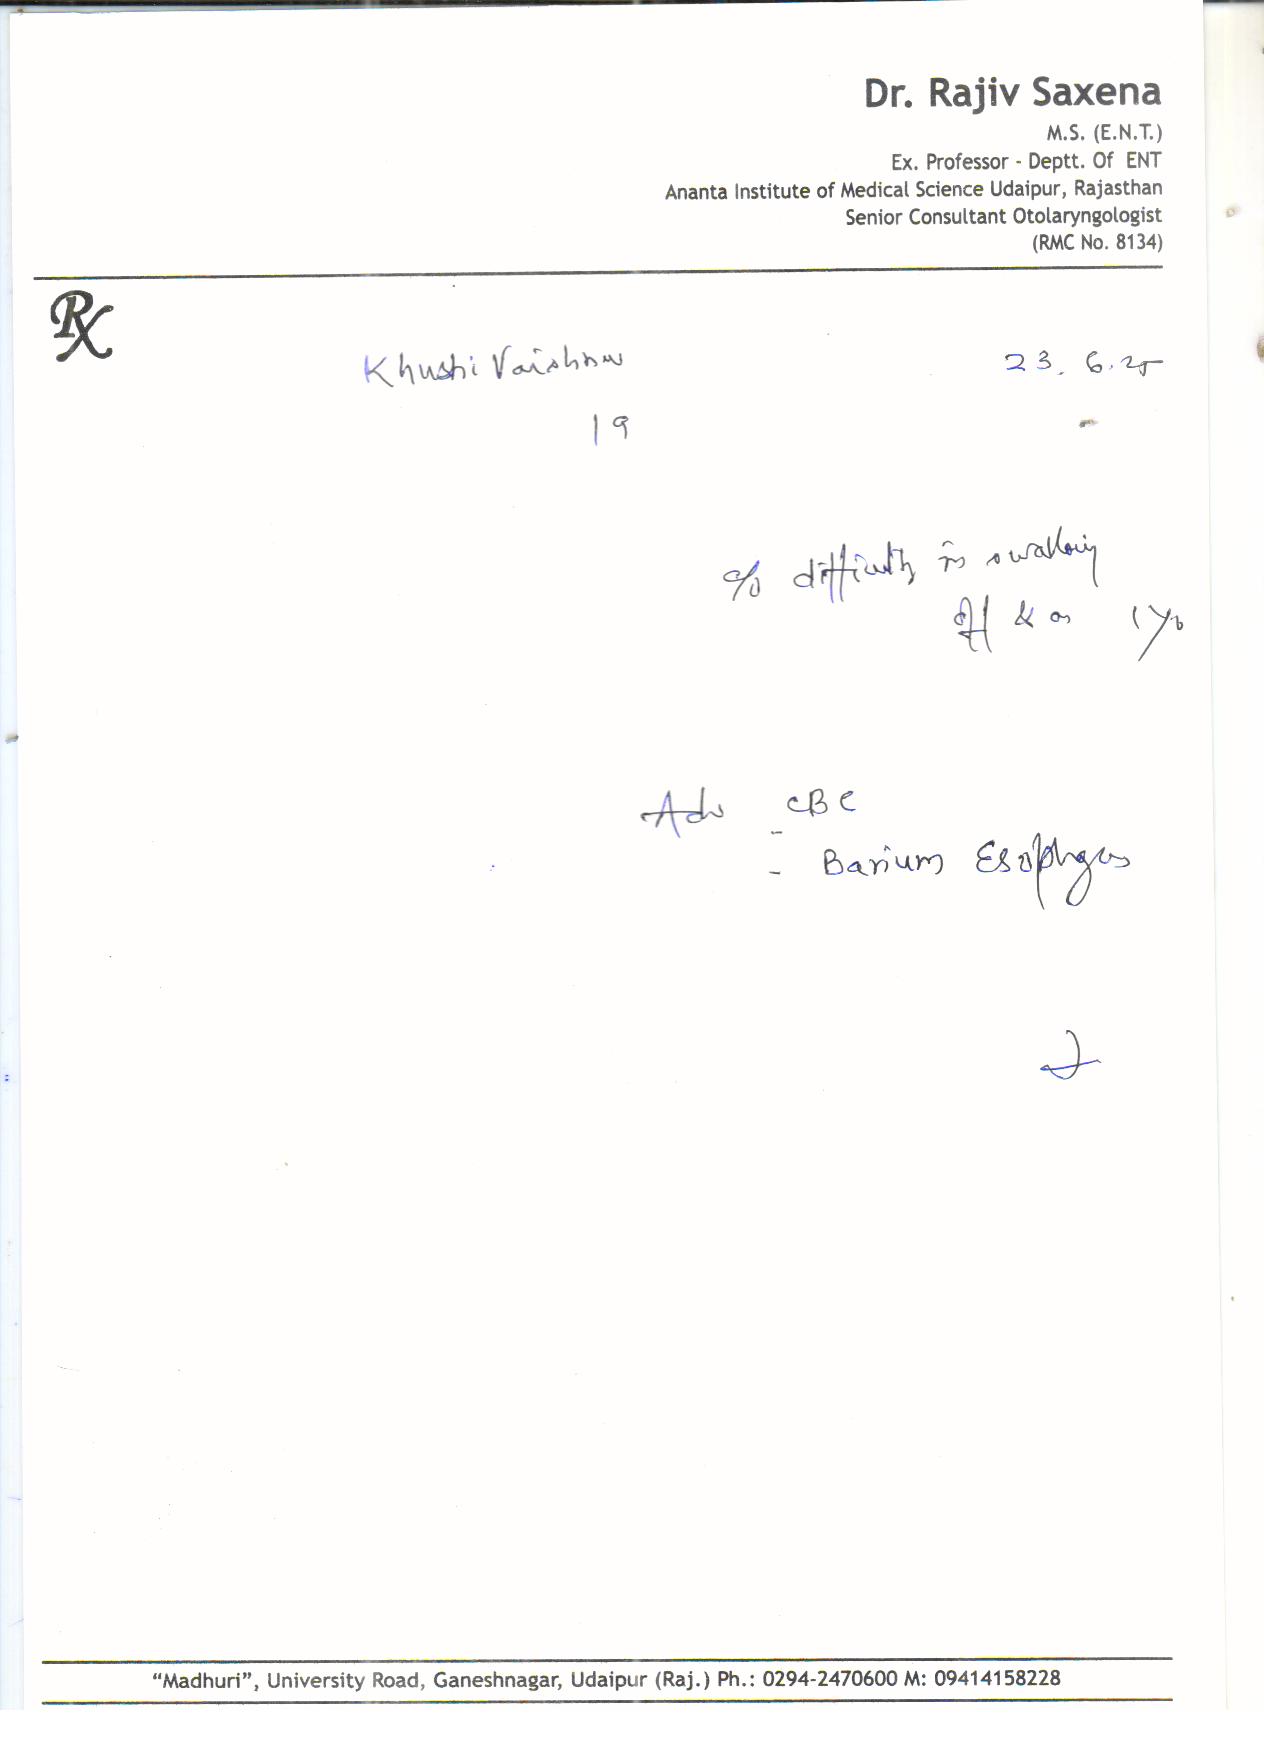 Dr. Rajiv Saxena
M.S. (E.N.T.)
Ex. Professor - Deptt. Of ENT
Ananta Institute of Medical Science Udaipur, Rajasthan
Senior Consultant Otolaryngologist
(RMC No. 8134)
Rx
Khushi Vaishnav 23.6.25
19
c/o difficulty in swallowing
off & on 1 yr
Adv CBC
- Barium Esophagus
"Madhuri", University Road, Ganeshnagar, Udaipur (Raj.) Ph.: 0294-2470600 M: 09414158228